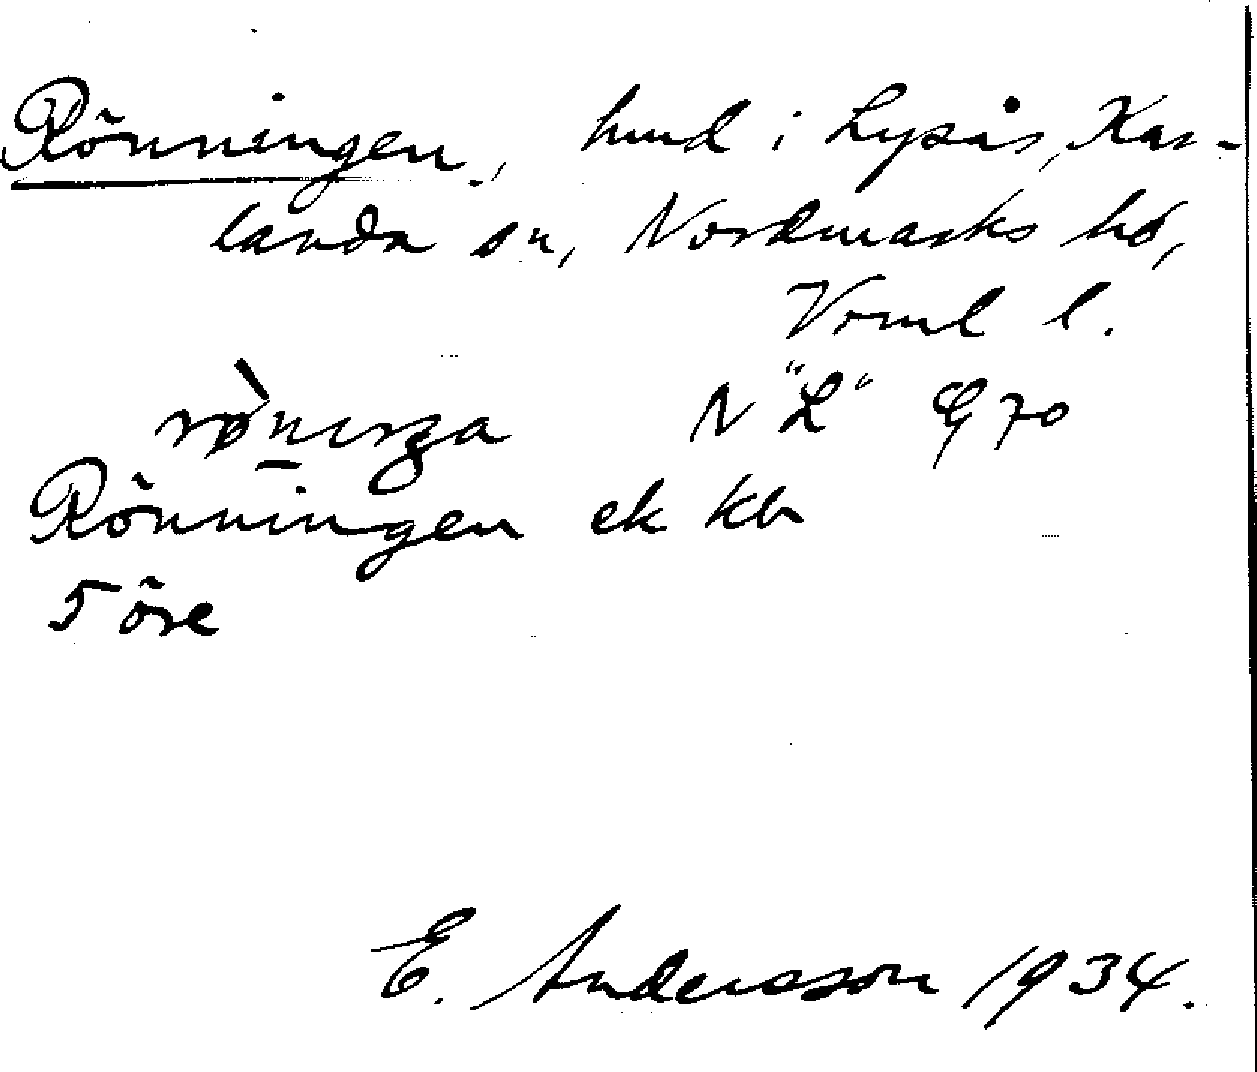 Rönningen, hmd i Lysås, Kar-
landa sn, Nordmarks hd,
Vrml l.
N "L" G 70
Rönningen ek kbr
5 öre
E. Andersson 1934.